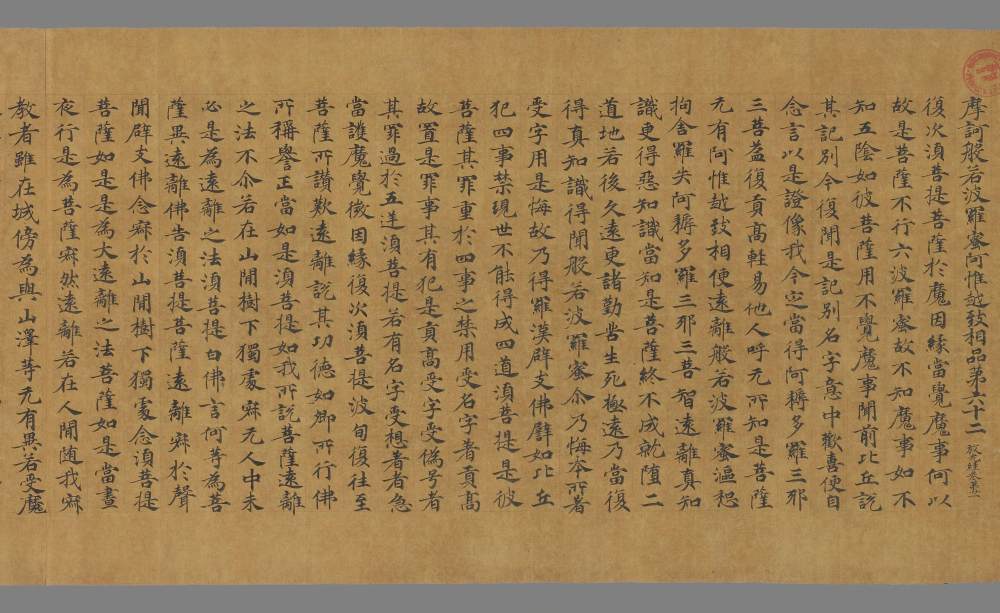 摩訶般若波羅蜜阿惟越致相品第六十二 放光經卷第
復次湏菩提菩薩於魔因緣當覺魔事何以
故是菩薩不行六波羅蜜故不知魔事如不
知五陰如彼菩薩用不覺魔事聞前比丘說
其記別今復聞是記別名字意中歡喜便自
念言以是證像我今定當得阿耨多羅三耶
三菩益復貢高軽易他人呼无所知是菩薩
无有阿惟越致相便遠離般若波羅蜜漚惒
拘舎羅失阿耨多羅三耶三菩智遠離真知
識更得惡知識當知是菩薩終不成就堕二
道地若後久遠更諸勤苦生死極遠乃當復
得真知識得聞般若波羅蜜尒乃悔本所著
受字用是悔故乃得羅漢辟支佛譬如比丘
犯四事禁現世不能得成四道湏菩提是彼
菩薩其罪重於四事之禁用受名字著貢高
故置是罪事其有犯是貢高受字受偽号者
其罪過於五逆湏菩提若有名字受想著者急
當護魔覺微因緣復次湏菩提波旬復往至
菩薩所讃歎遠離說其功德如卿所行佛
所稱譽正當如是湏菩提如我所說菩薩遠離
之法不尒若在山間樹下獨處寂无人中未
必是為遠離之法湏菩提白佛言何等為菩
薩異遠離佛告湏菩提菩薩遠離寂於聲
聞辟支佛念寂於山間樹下獨處念湏菩提
菩薩如是是為大遠離之法菩薩如是當晝
夜行是為菩薩寂然遠離若在人間随我寂
教者雖在城傍為與山澤等无有異若受魔